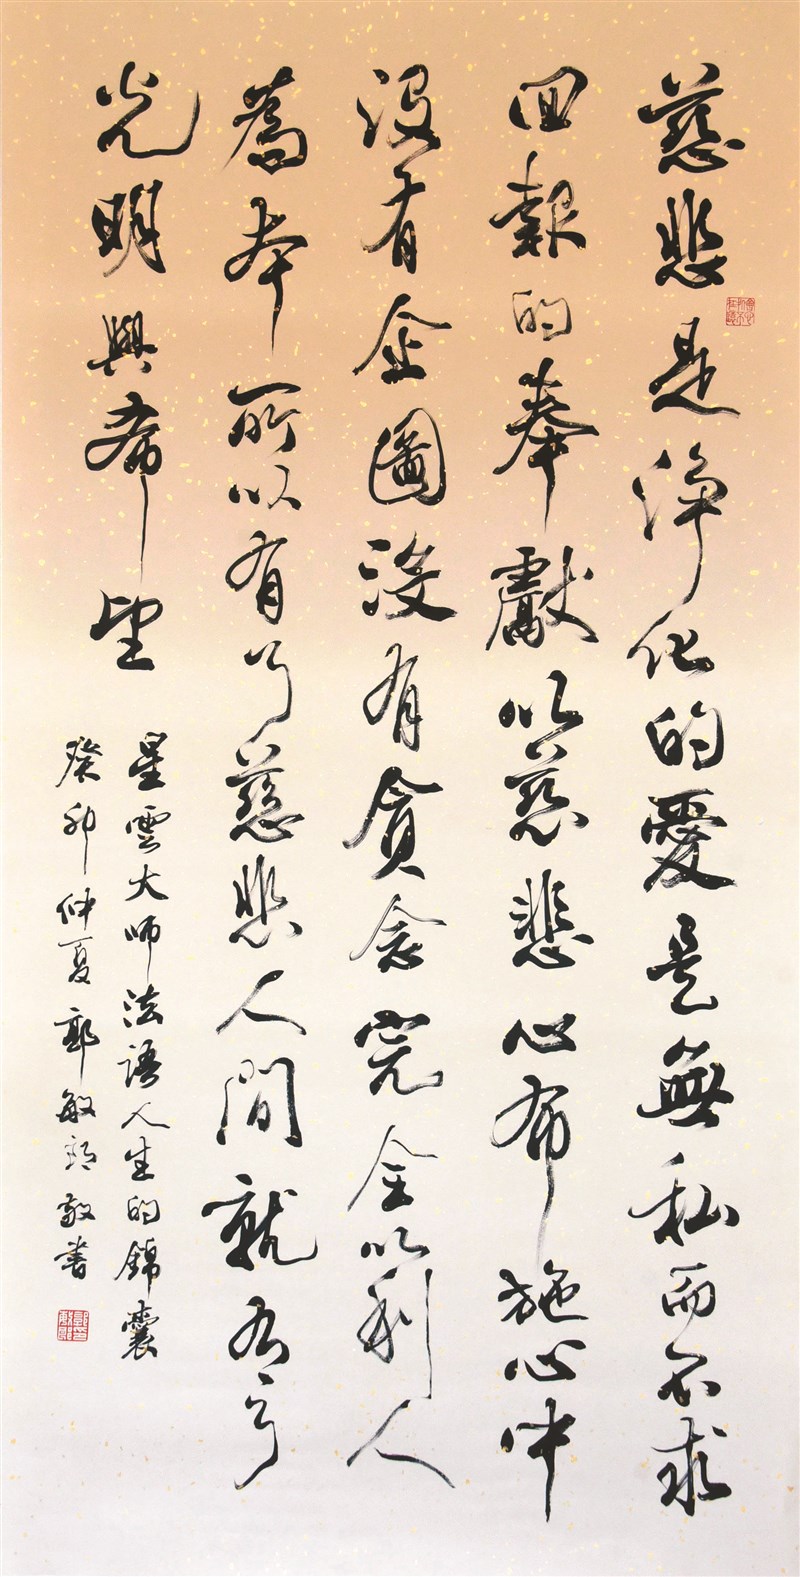 慈悲是淨化的愛是無私而不求
回報的奉獻以慈悲心布施心中
沒有企圖沒有貪念完全以利人
為本所以有了慈悲人間就有了
光明與希望
星雲大師法語人生的錦囊
癸卯仲夏郭敏郎敬書